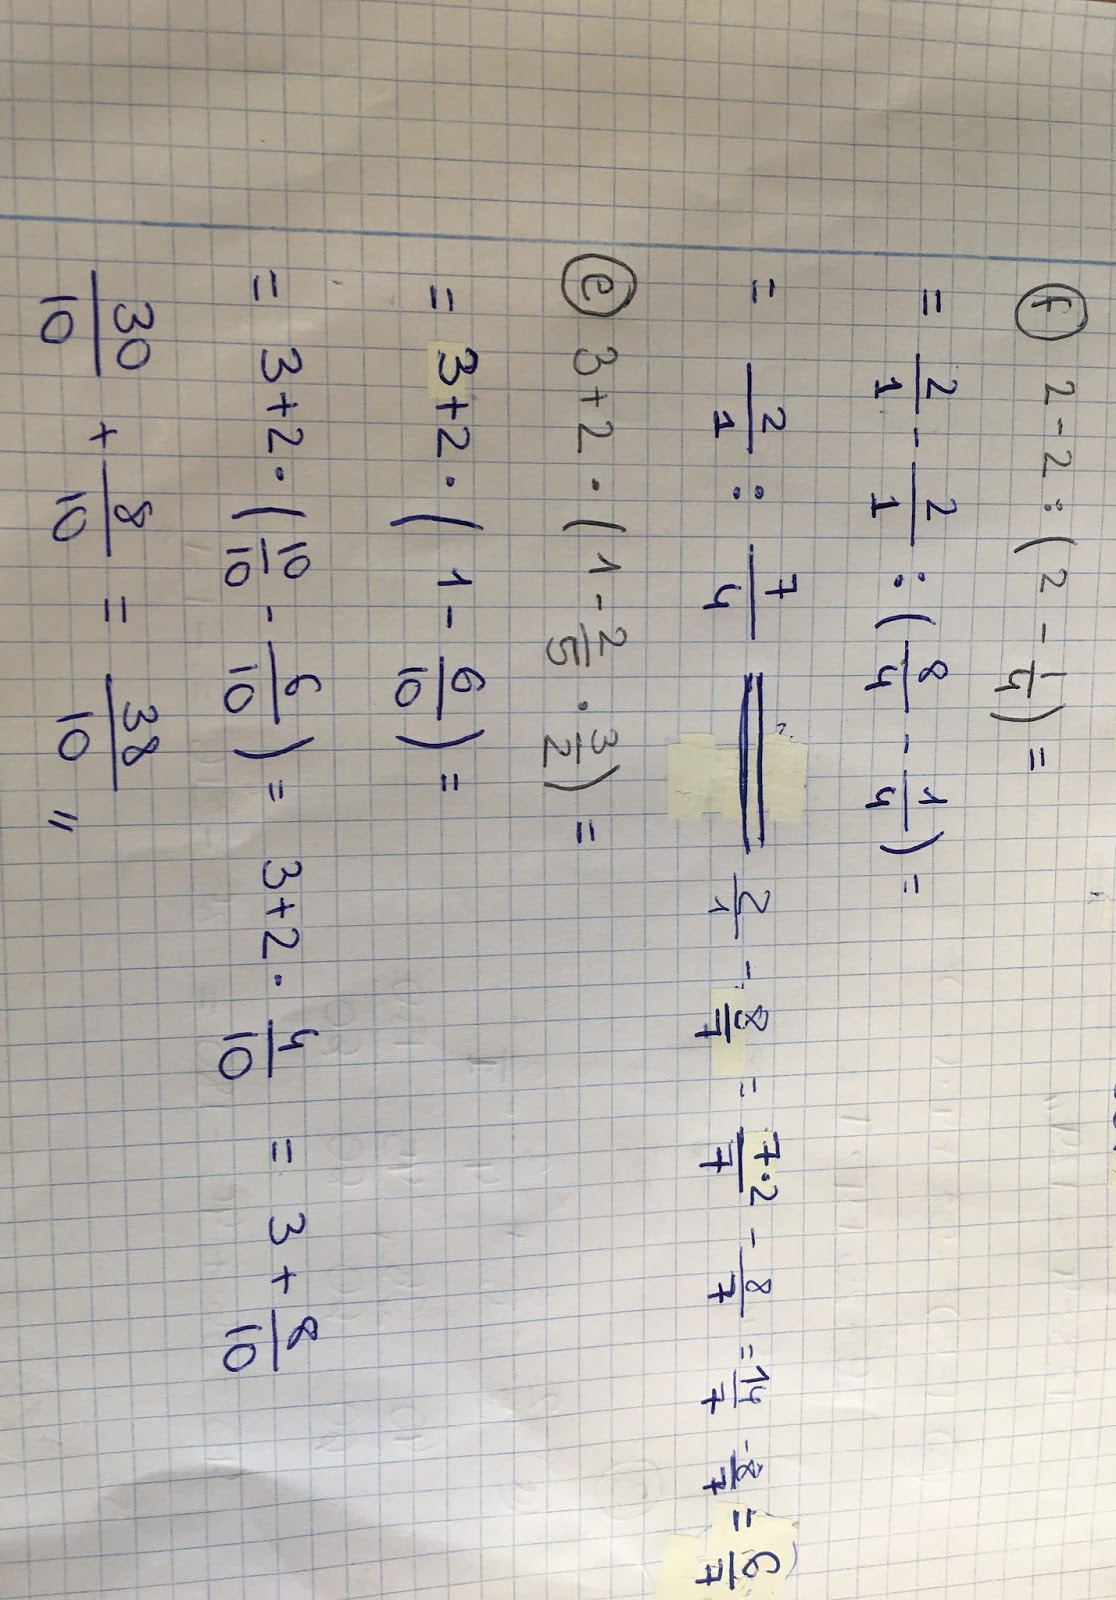 f 2 - 2 : (2 - 1/4) =
= 2/1 - 2/1 : (8/4 - 1/4) =
= 2/1 : 7/4 = 2/1 - 8/7 = 7·2/7 - 8/7 = 14/7 - 8/7 = 6/7
e 3 + 2 · (1 - 2/5 · 3/2) =
= 3 + 2 · (1 - 6/10) =
= 3 + 2 · (10/10 - 6/10) = 3 + 2 · 4/10 = 3 + 8/10
30/10 + 8/10 = 38/10 "